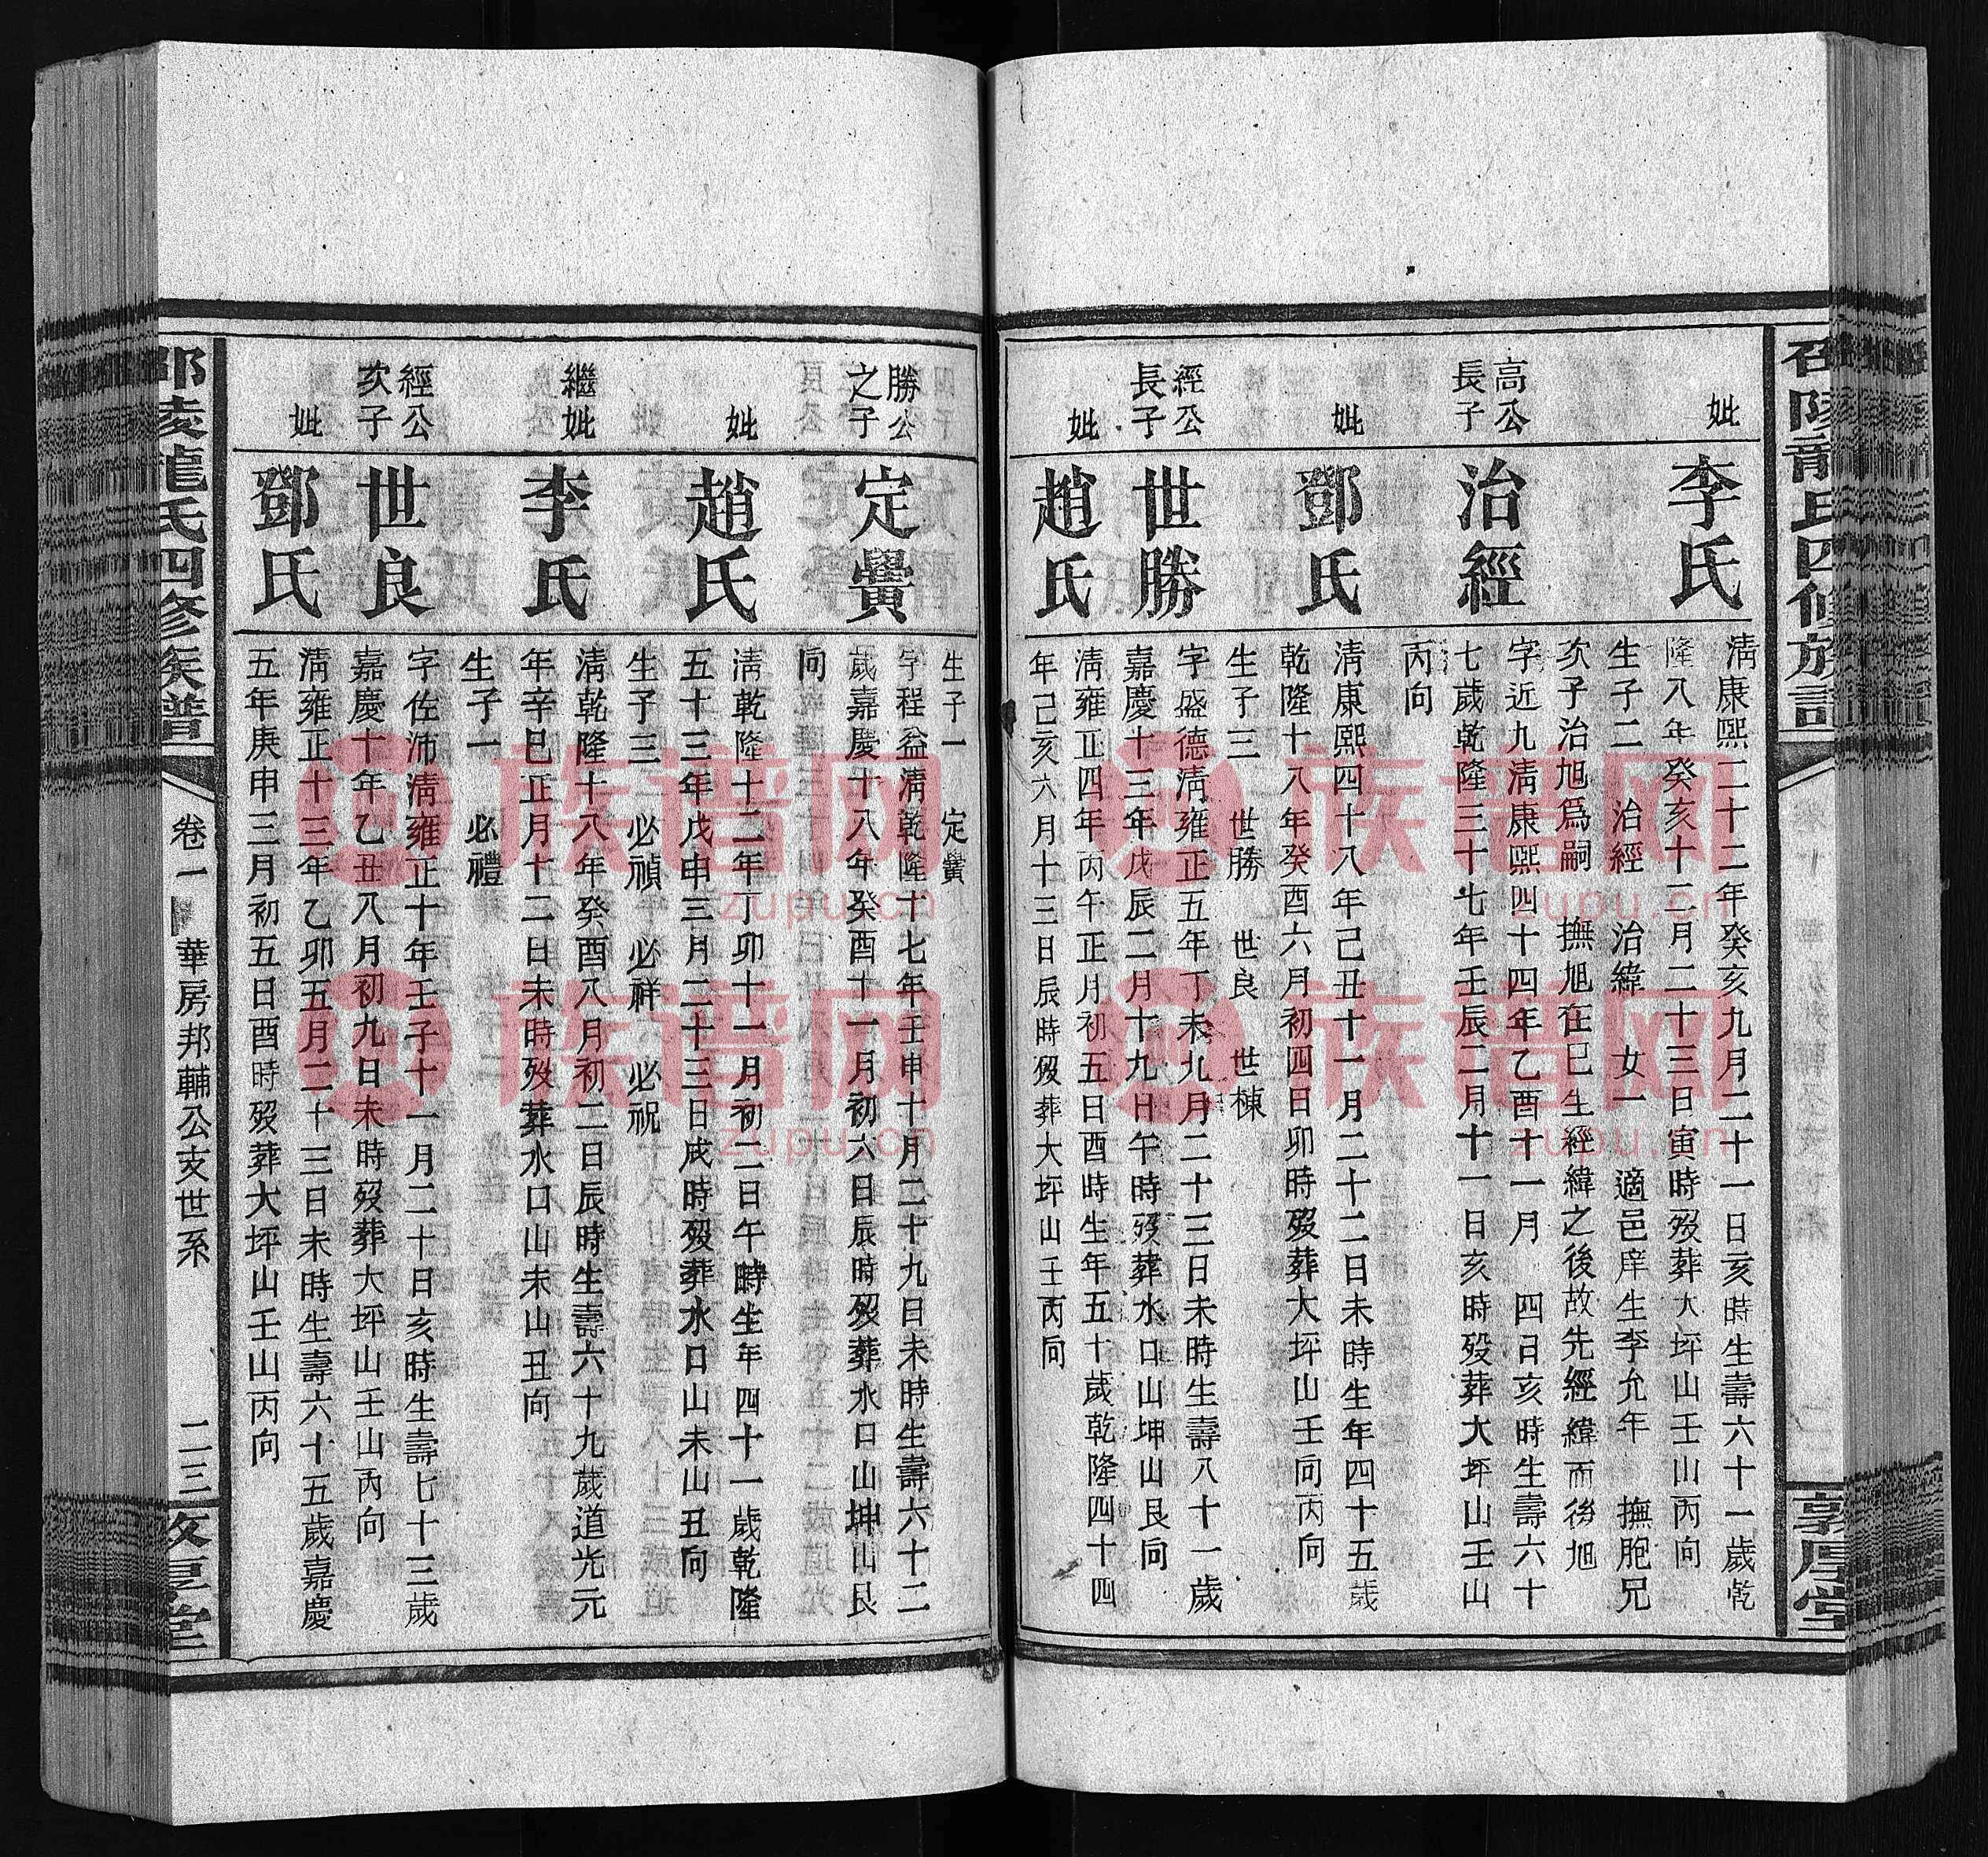 召陵龍氏四修族譜
敦厚堂
妣
李氏
清康熙二十二年癸亥九月二十一日亥時生壽六十一歲乾
隆八年癸亥十二月二十三日寅時歿葬大坪山壬山丙向
生子二 治經 治緯 女一 適邑庠生李允年 撫胞兄
次子治旭為嗣 撫旭在已生經緯之後故先經緯而後旭
高公
長子
治經
字近九清康熙四十四年乙酉十一月 四日亥時生壽六十
七歲乾隆三十七年壬辰二月十一日亥時歿葬大坪山壬山
丙向
妣
鄧氏
清康熙四十八年己丑十一月二十二日未時生年四十五歲
乾隆十八年癸酉六月初四日卯時歿葬大坪山壬向丙向
生子三 世勝 世良 世棟
經公
長子
世勝
字盛德清雍正五年丁未九月二十三日未時生壽八十一歲
嘉慶十三年戊辰二月十九日午時歿葬水口山坤山艮向
妣
趙氏
清雍正四年丙午正月初五日酉時生年五十歲乾隆四十四
年己亥六月十三日辰時歿葬大坪山壬丙向
生子一 定黌
勝公
之子
定黌
字程益清乾隆十七年壬申十月二十九日未時生壽六十二
歲嘉慶十八年癸酉十一月初六日辰時歿葬水口山坤山艮
向
妣
趙氏
清乾隆十二年丁卯十一月初二日午時生年四十一歲乾隆
五十三年戊申三月二十三日戌時歿葬水口山未山丑向
生子三 必禎 必祥 必祝
繼妣
李氏
清乾隆十八年癸酉八月初二日辰時生壽六十九歲道光元
年辛巳正月十二日未時歿葬水口山未山丑向
生子一 必禮
經公
次子
世良
字佐沛清雍正十年壬子十一月二十日亥時生壽七十三歲
嘉慶十年乙丑八月初九日未時歿葬大坪山壬山丙向
妣
鄧氏
清雍正十三年乙卯五月二十三日未時生壽六十五歲嘉慶
五年庚申三月初五日酉時歿葬大坪山壬山丙向
邵陵龍氏四修族譜
卷一 華房邦輔公支世系
二三
敦厚堂
族谱网
zupu.cn
族谱网
zupu.cn
族谱网
zupu.cn
族谱网
zupu.cn